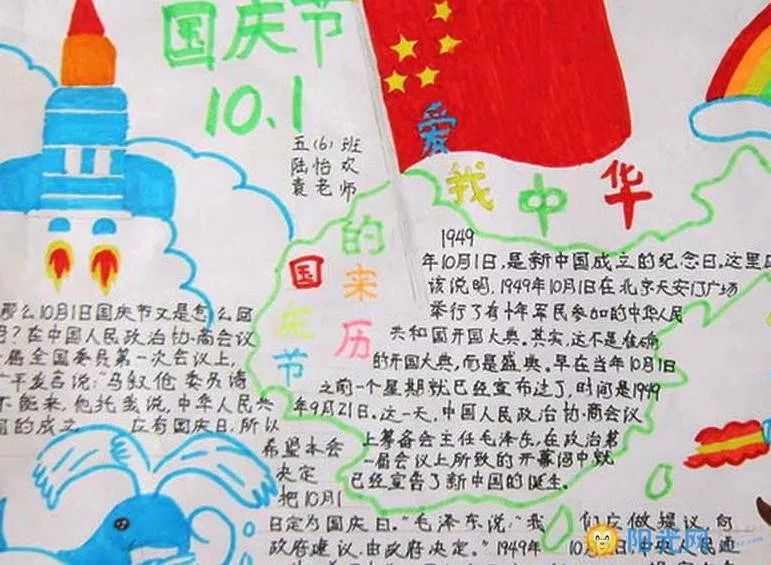 国庆节
10.1
五(6)班
陆怡欢
袁老师
爱我中华
国庆节的来历
1949
年10月1日,是新中国成立的纪念日。这里应
该说明,1949年10月1日在北京天安门广场
举行了有十年军民参加的中华人民
共和国开国大典。其实,这不是准确
的开国大典,而是盛典。早在当年10月1日
之前一个星期就已经宣布过了,时间是1949
年9月21日。这一天,中国人民政治协商会议
上筹备会主任毛泽东,在政治第
一届会议上所致的开幕词中就
已经宣告了新中国的诞生。
那么10月1日国庆节又是怎么回
?在中国人民政治协商会议
届全国委员第一次会议上,
平发言说:“马叙伦委员请
不能来,他托我说,中华人民共
国的成立 应有国庆日,所以
希望本会
决定
把10月1
日定为国庆日。”毛泽东说:“我们应做提议,向
政府建议,由政府决定。”1949年10月2日,中央人民通
阳光网